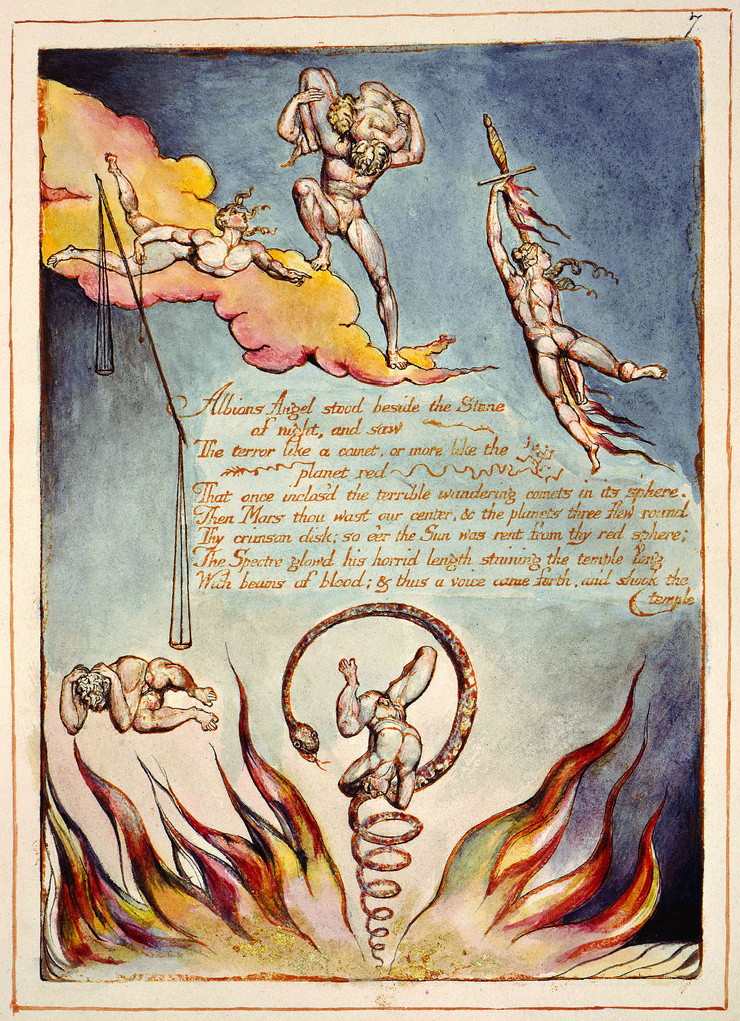 7
Albions Angel stood beside the Stone
of night, and saw
The terror like a comet, or more like the
planet red
That once inclos'd the terrible wandering comets in its sphere.
Then Mars thou wast our center, & the planets three flew round
Thy crimson disk; so eer the Sun was rent from thy red sphere;
The Spectre glowd his horrid length staining the temple long
With beams of blood; & thus a voice came forth, and shook the
temple